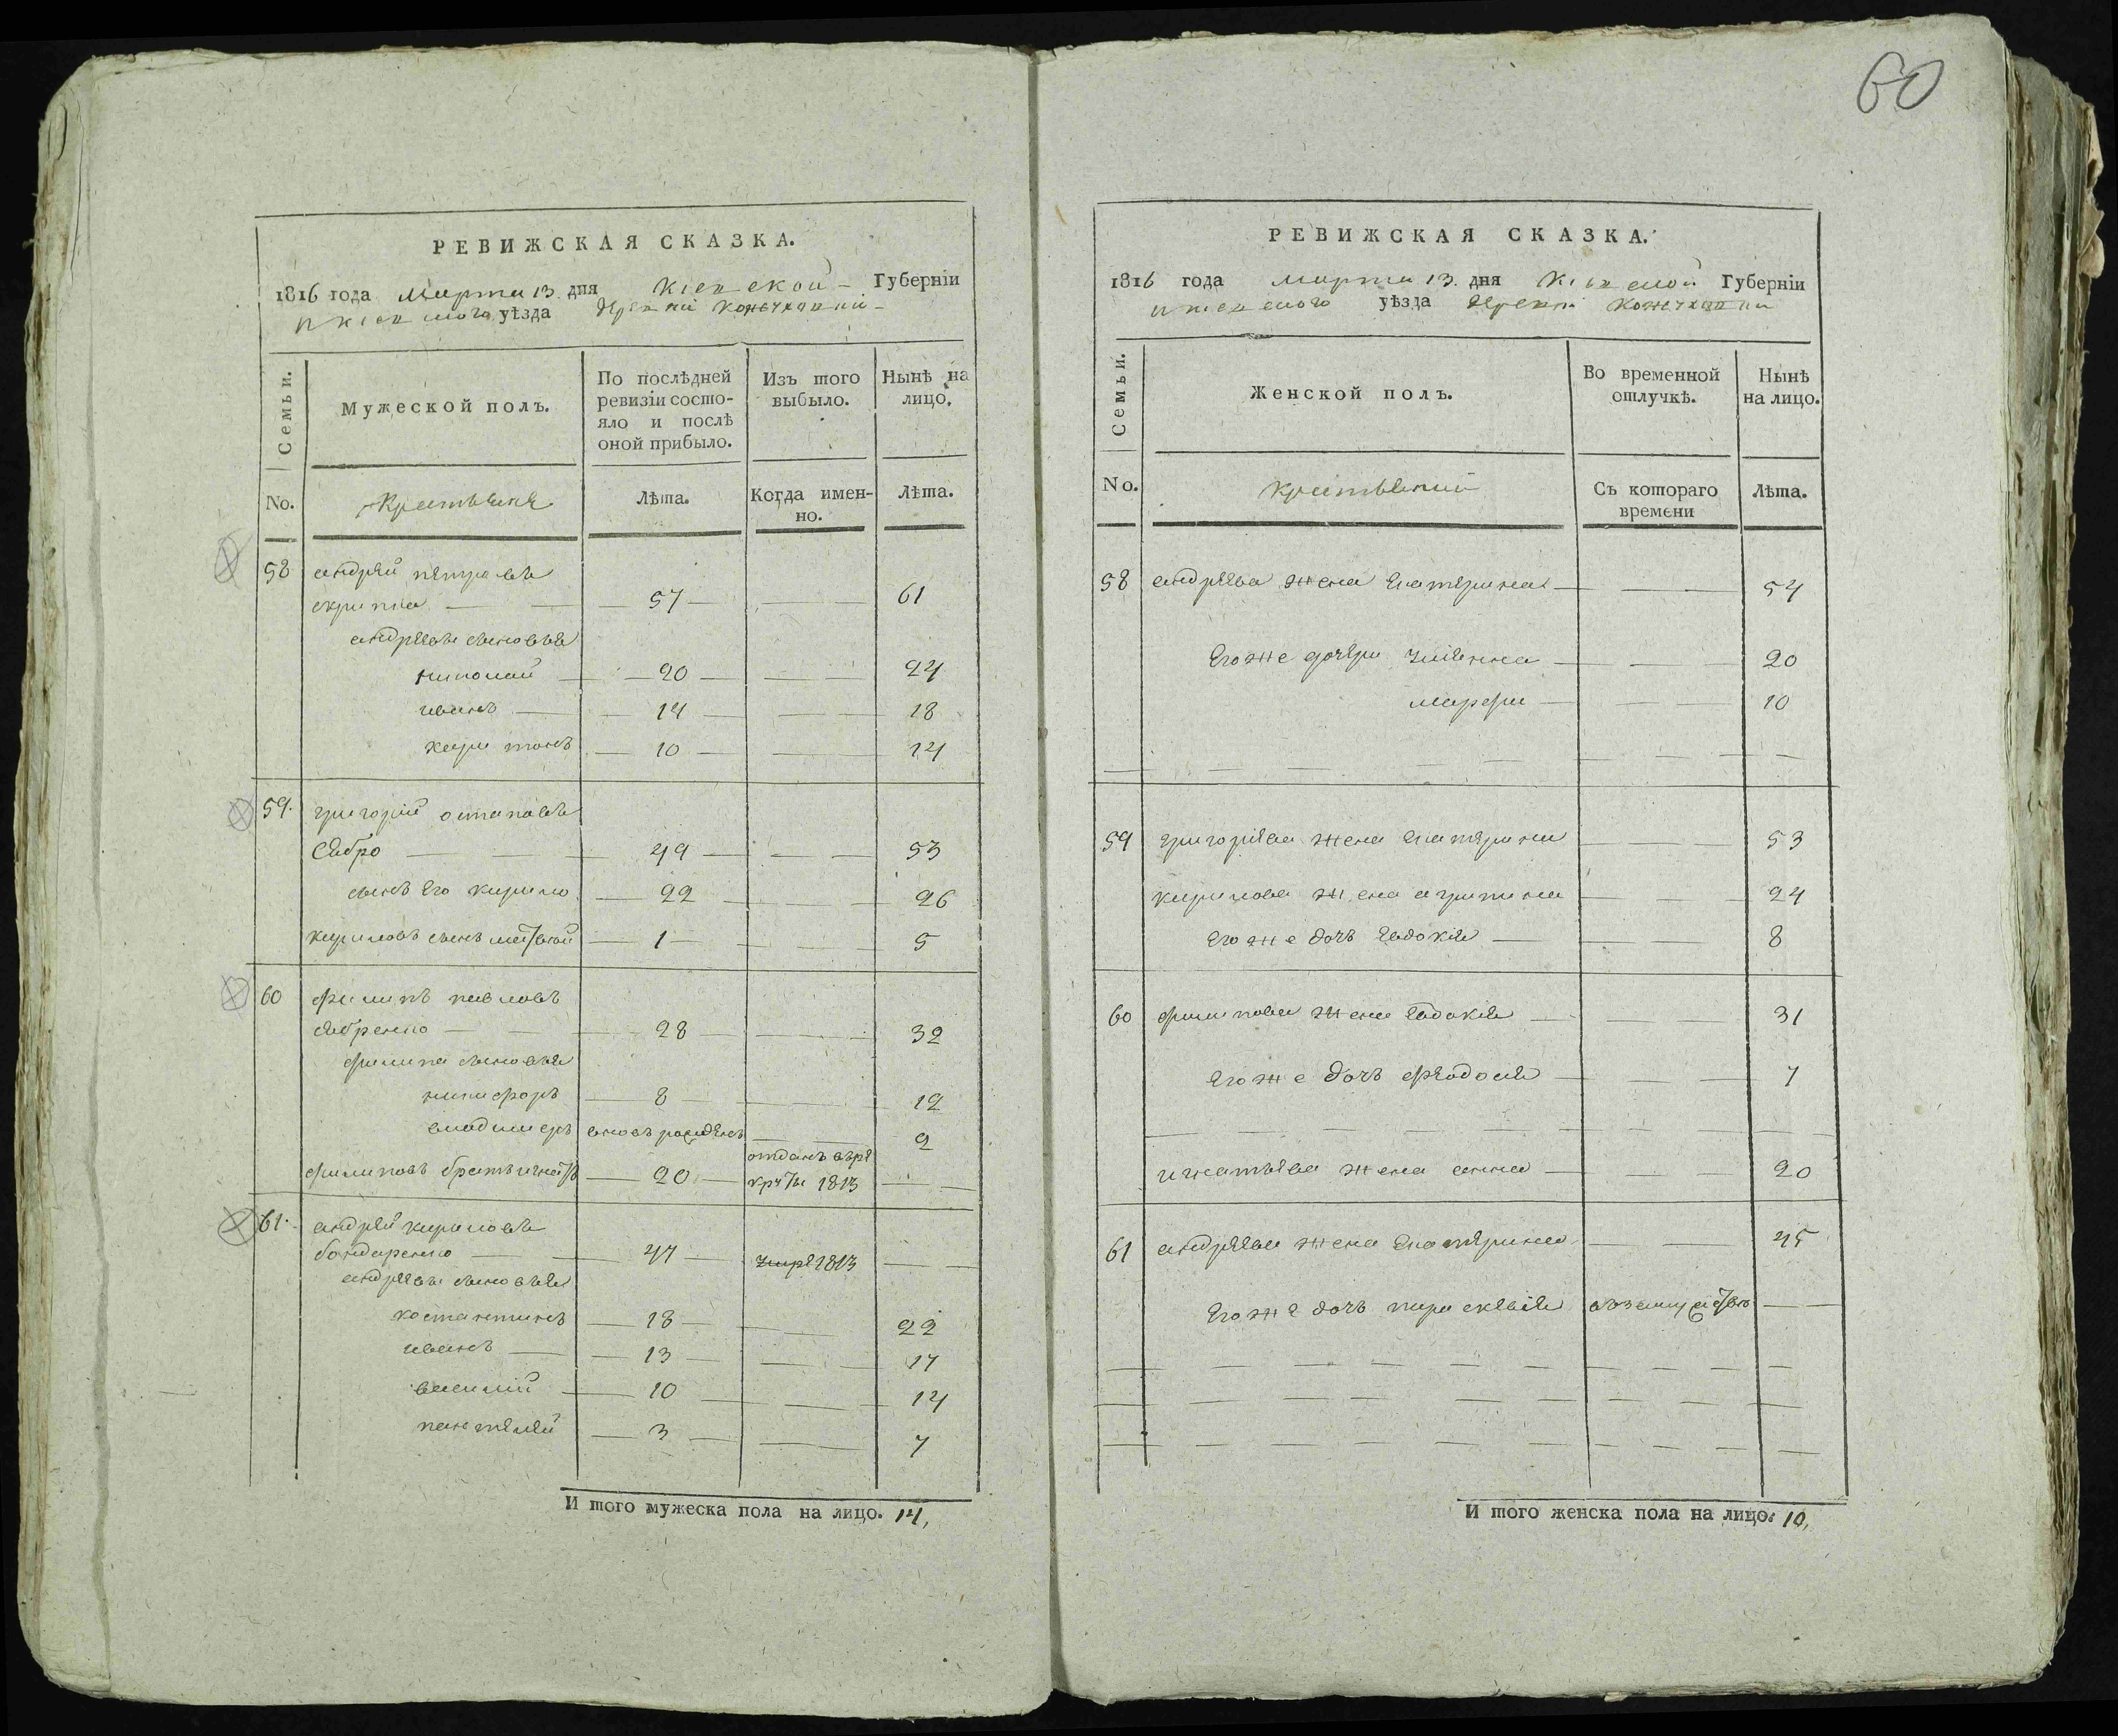 60
РЕВИЖСКАЯ СКАЗКА.
1816 года марта 13 дня Кіевской Губерніи
и кіевского уѣзда деревни Кожухавки
Семьи.
Мужеской полъ.
По послѣдней ревизіи состо-
яло и послѣ
оной прибыло.
Изъ того
выбыло.
Нынѣ на
лицо.
No.
Крестьяне
Лѣта.
Когда имен-
но.
Лѣта.
58 андрей петровъ
скрипка — 57 — 61
андреевы сыновья
николай — 20 — 24
иванъ — 14 — 18
харитонъ — 10 — 14
59. григорій остаповъ
Сябро — 49 — 53
сынъ его кирило — 22 — 26
кириловъ сынъ матвей — 1 — 5
60 филипъ павловъ
сябренко — 28 — 32
филипа сыновья
никифоръ — 8 — 12
владимеръ вновь рожденъ — 2
отданъ в ре
филиповъ братъ игнатъ — 20 — круты 1813
61. андрей кириловъ
бондаренко — 47 — умре 1813
андреевы сыновья
костантинъ — 18 — 22
иванъ — 13 — 17
василій — 10 — 14
пантелей — 3 — 7
И того мужеска пола на лицо. 14,
РЕВИЖСКАЯ СКАЗКА.
1816 года марта 13 дня Кіевской Губерніи
и кіевского уѣзда деревни Кожухавки
Семьи.
Женской полъ.
Во временной
отлучкѣ.
Нынѣ
на лицо.
No.
Крестьянки
Съ котораго
времени
Лѣта.
58 андреева жена екатерина — 54
его же дочери ульянна — 20
марфа — 10
59 григоріева жена екатерина — 53
кирилова жена агрипина — 24
его же дочь евдокія — 8
60 филипова жена евдокія — 31
его же дочь феодосія — 7
игнатьева жена анна — 20
61 андреева жена екатерина — 45
его же дочь парасквевія в замужстве
И того женска пола на лицо: 10,